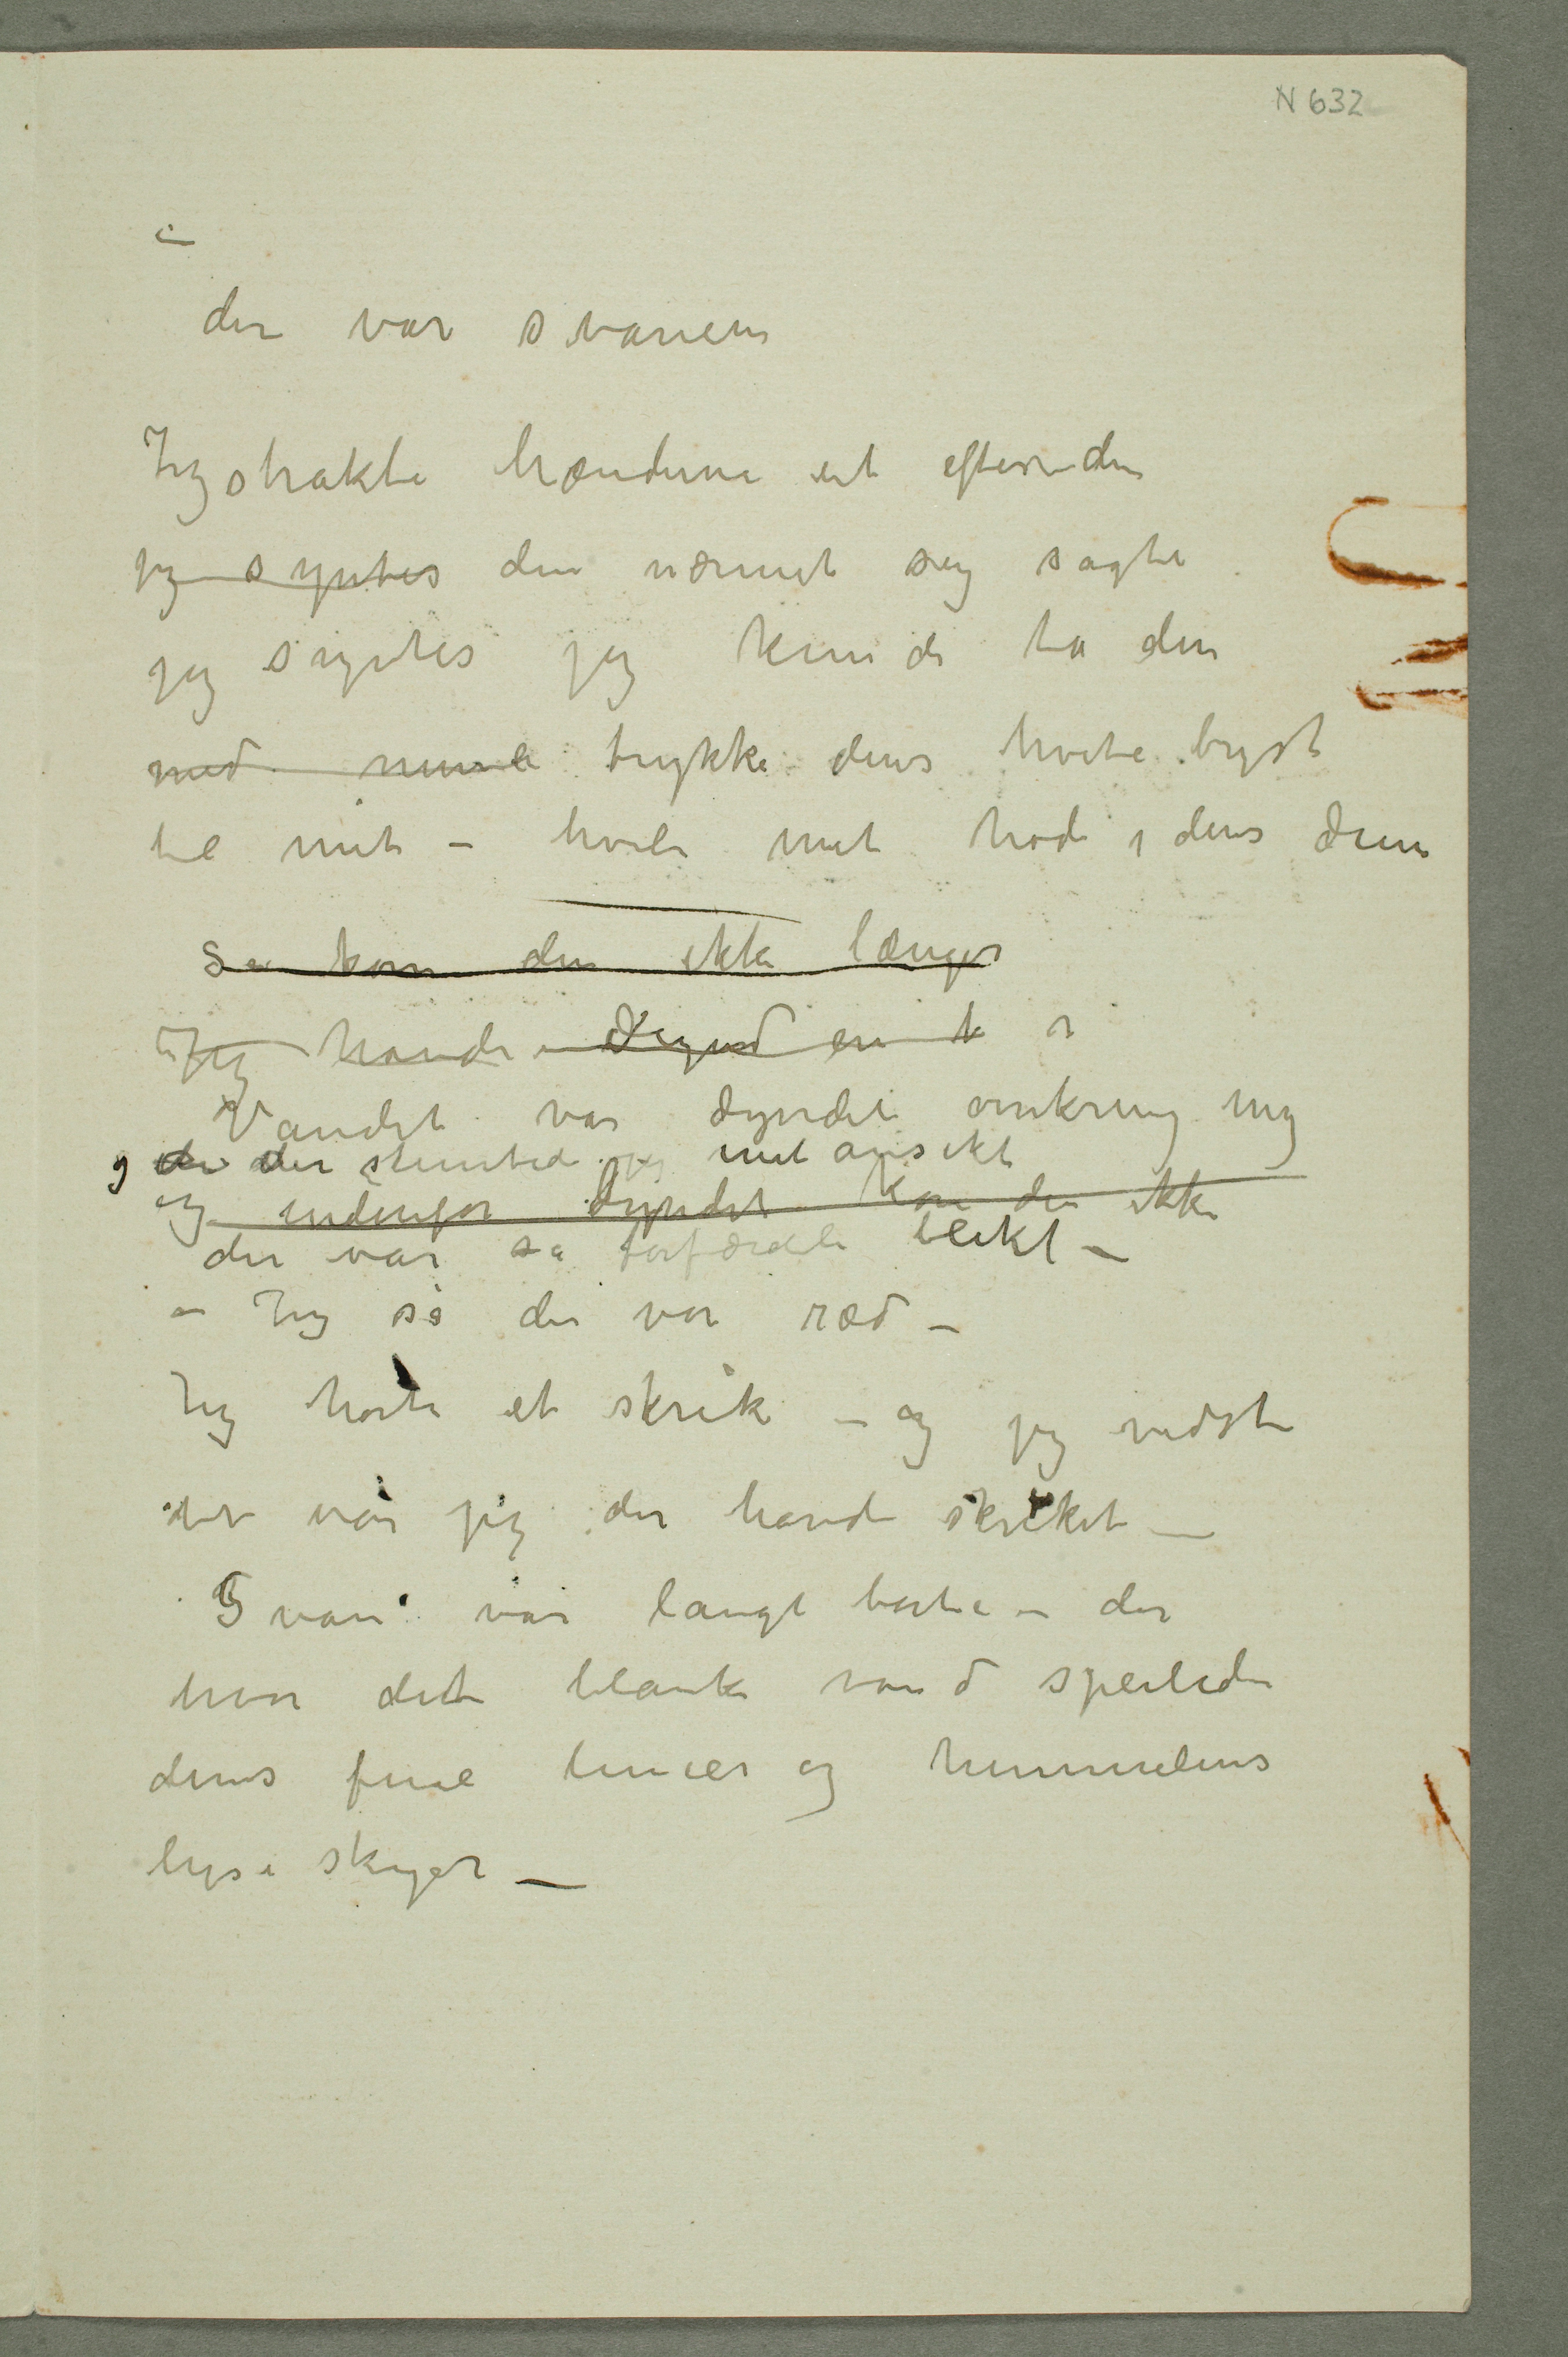 N 632
–
der var svanen
Jeg strakte hænderne ut efter den
jeg syntes den nærmet seg sagte
jeg syntes jeg kunde ta den
med mine trykke dens hvite bryst
til mit – hvile mit hode i dens dun
Så kom den ikke længer
Jeg havde dynd
Vandet var dyndet omkring mig
og der skimted jeg mit ansikt
og indenfor dyndet kom den ikke
der var så forfærdeli blekt –
– Jeg så der var ræd –
Jeg hørte et skrik – og jeg vidste
det var jeg der havde skriket –
Svanen var langt borte – der
hvor det blanke vand speilede
dens fine linier og himmelens
lyse skyer –